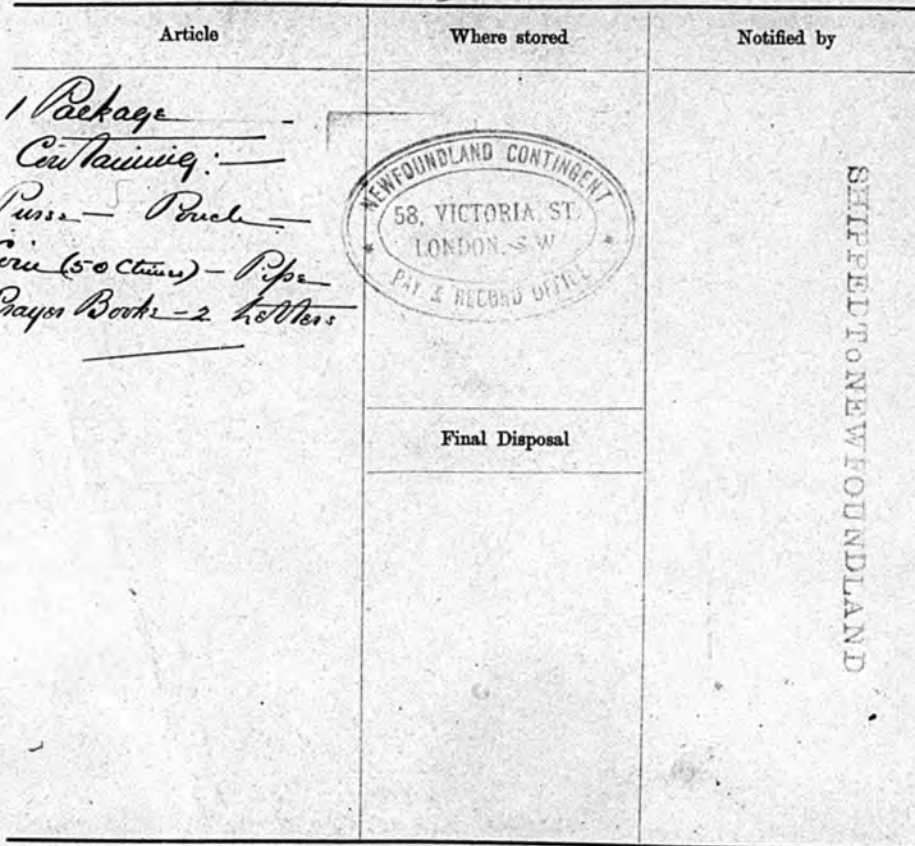 Article
Where stored
Notified by
1 Package
Containing:—
Purse — Pouch —
Coin (50 Ctimes) — Pipe
Prayer Book — 2 Letters
NEWFOUNDLAND CONTINGENT
58, VICTORIA ST.
LONDON, S.W
PAY & RECORD OFFICE
Final Disposal
SHIPPED TO NEWFOUNDLAND